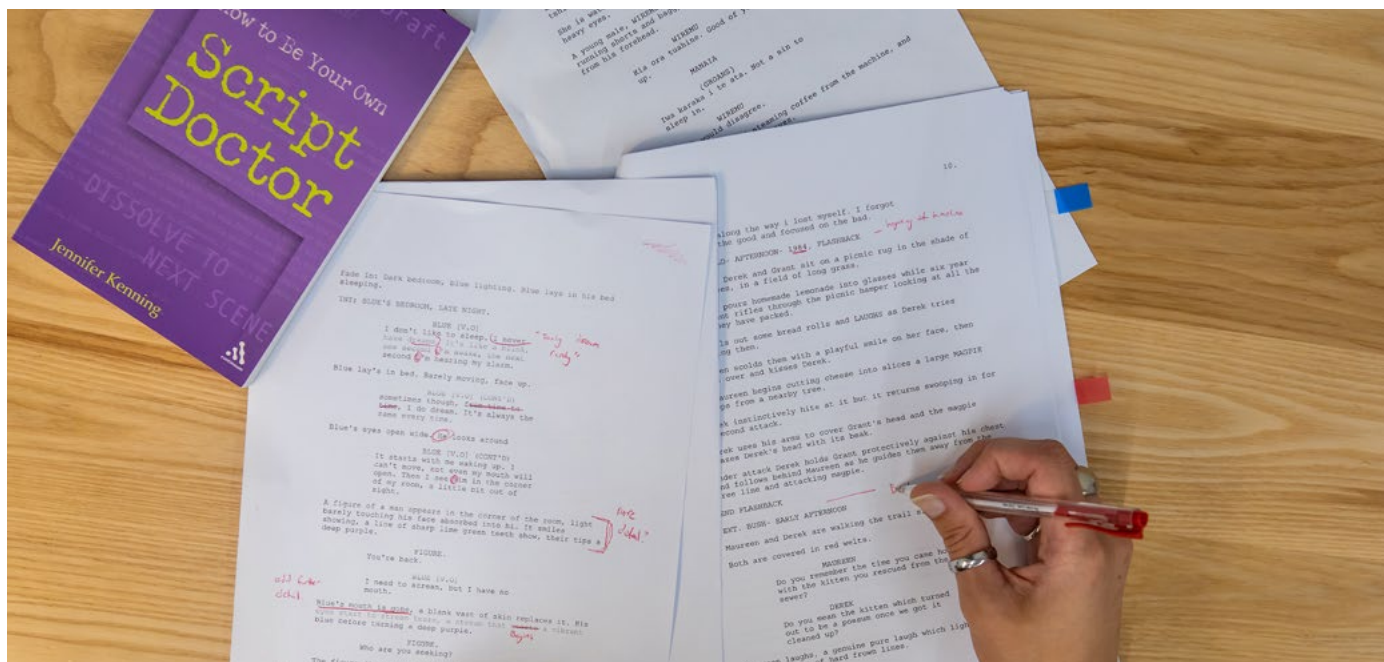 Draft
How to Be Your Own
Script
Doctor
DISSOLVE TO
NEXT SCENE
Jennifer Kenning
She is
heavy eyes.
A young male, WIREMU
running shorts and
from his forehead.
WIREMU
Kia ora tuahine. Good of
up.
MANAIA
(GROANS)
Iwa karaka i te ata. Not a sin to
sleep in.
WIREMU
would disagree.
steaming coffee from the machine, and
Fade in: Dark bedroom, blue lighting. Blue lays in his bed
sleeping.
INT: BLUE'S BEDROOM, LATE NIGHT.
BLUE (V.O)
I don't like to sleep, I never
have dreams. It's like a
one second I'm awake, the next
second I'm hearing my alarm.
"Truly dream
rarely"
Blue lay's in bed. Barely moving, face up.
BLUE (V.O) (CONT'D)
sometimes though, from time to
time, I do dream. It's always the
same every time.
Blue's eyes open wide. He looks around
BLUE (V.O) (CONT'D)
It starts with me waking up. I
can't move, not even my mouth will
open. Then I see him in the corner
of my room, a little bit out of
sight.
A figure of a man appears in the corner of the room, light
barely touching his face absorbed into hi. It smiles
showing, a line of sharp lime green teeth show, their tips a
deep purple.
more
detail"
FIGURE.
You're back.
BLUE (V.O)
I need to scream, but I have no
mouth.
add further
detail
Blue's mouth is gone, a blank vast of skin replaces it. His
eyes start to stream tears, a stream that a vibrant
begins
blue before turning a deep purple.
FIGURE.
Who are you seeking?
The
10.
along the way i lost myself. I forgot
the good and focused on the bad.
AFTERNOON- 1984. FLASHBACK
Derek and Grant sit on a picnic rug in the shade of
in a field of long grass.
pours homemade lemonade into glasses while six year
rifles through the picnic hamper looking at all the
they have packed.
out some bread rolls and LAUGHS as Derek tries
then.
scolds them with a playful smile on her face, then
over and kisses Derek.
Maureen begins cutting cheese into slices a large MAGPIE
from a nearby tree.
instinctively hits at it but it returns swooping in for
second attack.
uses his arms to cover Grant's head and the magpie
Derek's head with its beak.
Under attack Derek holds Grant protectively against his chest
and follows behind Maureen as he guides them away from the
tree line and attacking magpie.
END FLASHBACK
EXT. BUSH- EARLY AFTERNOON
Maureen and Derek are walking the trail
Both are covered in red welts.
MAUREEN
Do you remember the time you came
with the kitten you rescued from the
sewer?
DEREK
Do you mean the kitten which turned
out to be a possum once we got it
cleaned up?
laughs, a genuine pure laugh which
of hard frown lines.